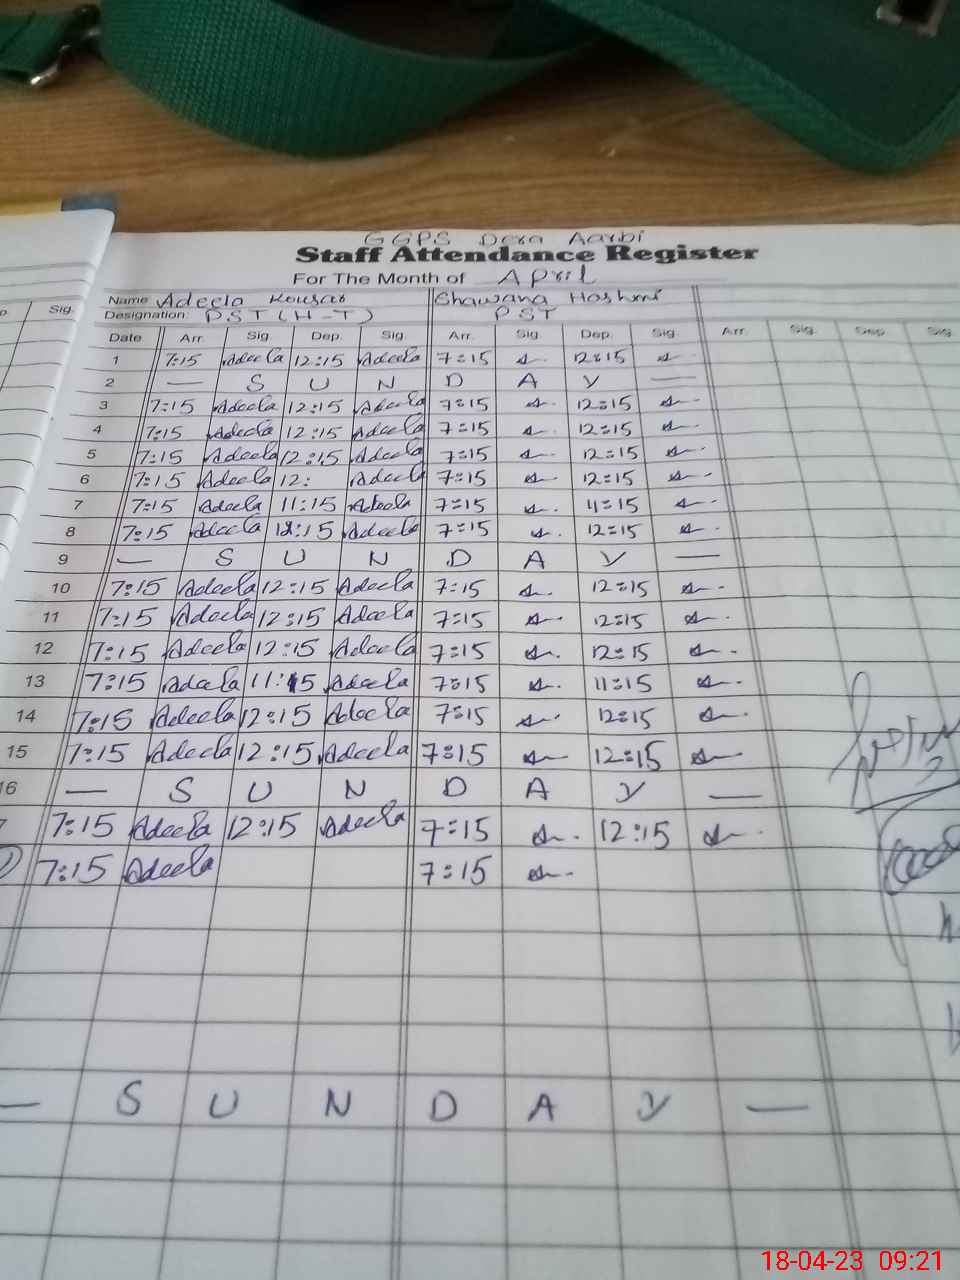 GGPS Dera Aarbi
Staff Attendance Register
For The Month of April
Sig.
Name Adeela Kousar Shawana Hashmi
Designation: PST (H-T) PST
Date Arr. Sig. Dep. Sig. Arr. Sig. Dep. Sig. Arr. Sig. Dep. Sig.
1 7:15 Adeela 12:15 Adeela 7:15 12:15
2 — S U N D A Y —
3 7:15 Adeela 12:15 Adeela 7:15 12:15
4 7:15 Adeela 12:15 Adeela 7:15 12:15
5 7:15 Adeela 12:15 Adeela 7:15 12:15
6 7:15 Adeela 12: Adeela 7:15 12:15
7 7:15 Adeela 11:15 Adeela 7:15 11:15
8 7:15 Adeela 12:15 Adeela 7:15 12:15
9 — S U N D A Y —
10 7:15 Adeela 12:15 Adeela 7:15 12:15
11 7:15 Adeela 12:15 Adeela 7:15 12:15
12 7:15 Adeela 12:15 Adeela 7:15 12:15
13 7:15 Adeela 11:15 Adeela 7:15 11:15
14 7:15 Adeela 12:15 Adeela 7:15 12:15
15 7:15 Adeela 12:15 Adeela 7:15 12:15
16 — S U N D A Y —
7 7:15 Adeela 12:15 Adeela 7:15 12:15
7:15 Adeela 7:15
— S U N D A Y —
18-04-23 09:21